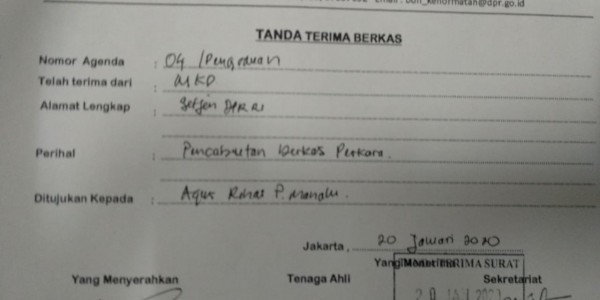 Email : bun_kehormatan@dpr.go.id
TANDA TERIMA BERKAS
Nomor Agenda : 04 / Pengaduan
Telah terima dari : MKD
Alamat Lengkap : Setjen DPR RI
Perihal : Pencabutan berkas Perkara.
Ditujukan Kepada : Agus
Jakarta, 20 Januari 2020
Yang Menerima TERIMA SURAT
Yang Menyerahkan Tenaga Ahli Sekretariat